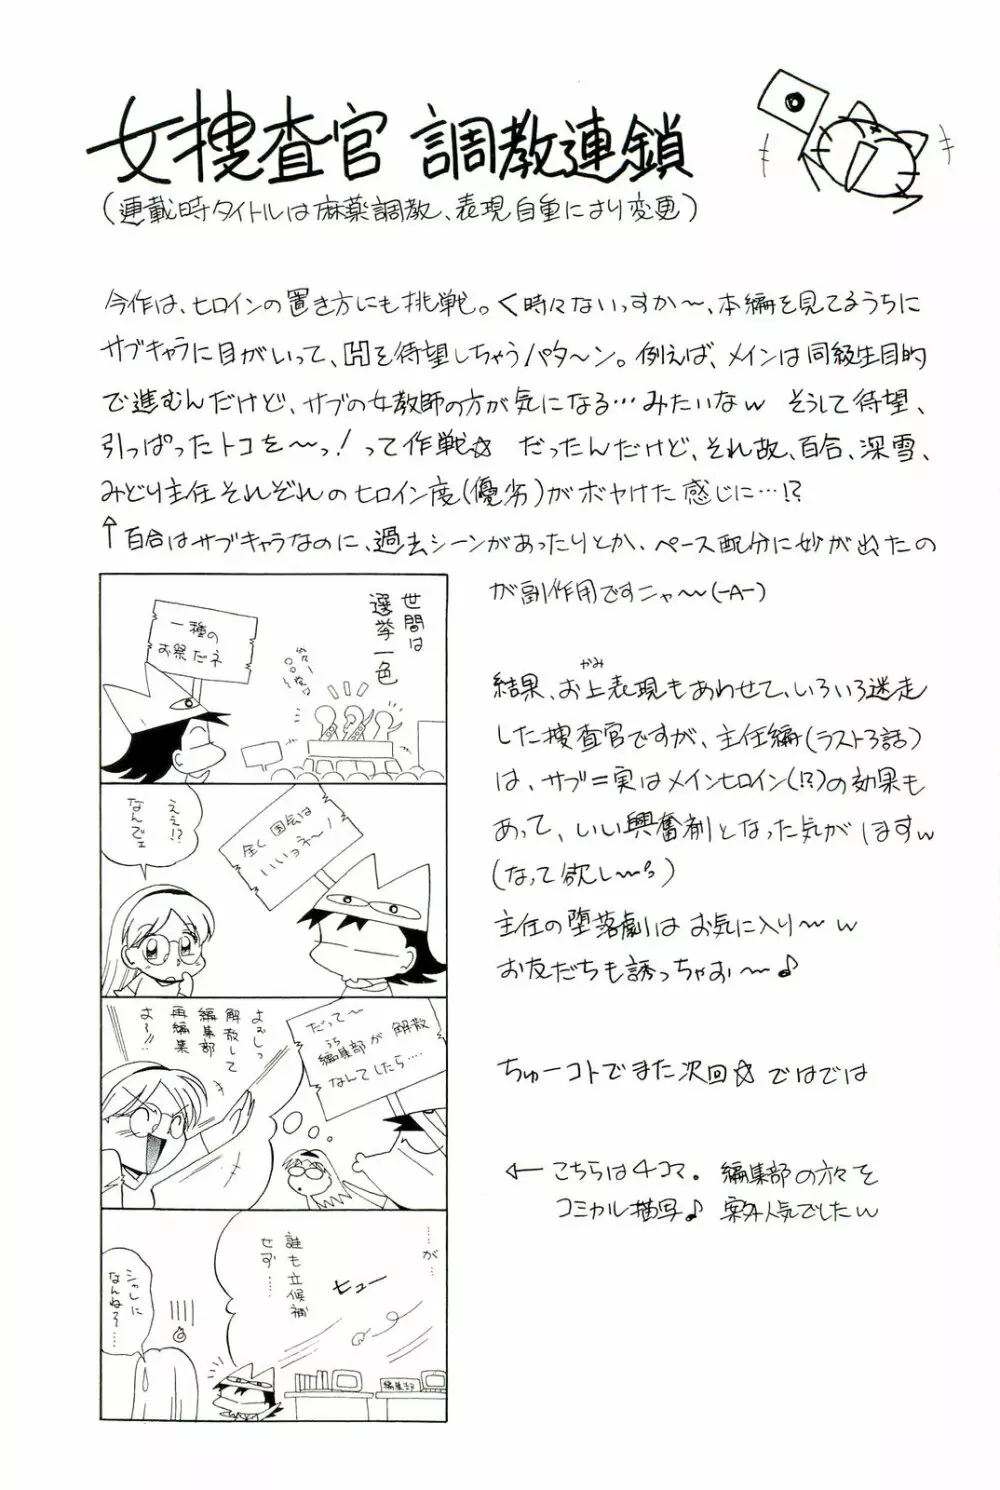 女捜査官 調教連鎖
(連載時タイトルは麻薬調教、表現自重により変更)
今作は、ヒロインの置き方にも挑戦。く時々ないっすか～、本編を見てるうちに
サブキャラに目がいって、Hを待望しちゃうパタ～ン。例えば、メインは同級生目的
で進むんだけど、サブの女教師の方が気になる…みたいなw そうして待望、
引っぱったトコを～っ!って作戦☆ だったんだけど、それ故、百合、深雪、
みどり主任それぞれのヒロイン度(優劣)がボヤけた感じに…!?
↑百合はサブキャラなのに、過去シーンがあったりとか、ペース配分に妙が出たの
が副作用ですニャ～(-A-)
結果、お上表現もあわせて、いろいろ迷走
かみ
した捜査官ですが、主任編(ラスト3話)
は、サブ=実はメインヒロイン(!?)の効果も
あって、いい興奮剤となった気がしますw
(なって欲し～)
主任の堕落劇はお気に入り～w
お友だちも誘っちゃお～♪
ちゅーコトでまた次回☆ ではでは
←こちらは4コマ。編集部の方々を
コミカル描写♪ 案外人気でしたw
世間は
選挙一色
一種の
お祭だネ
全く国会は
いいョネ～!
ええ!?
なんでェ
だって～
うち
編集部が解散
なんてしたら….
よぉしっ
解散して
編集部
再編集
よ～!!
……が…
誰も立候補
せず……
ヒュー
編集部
シャレに
なんね～……